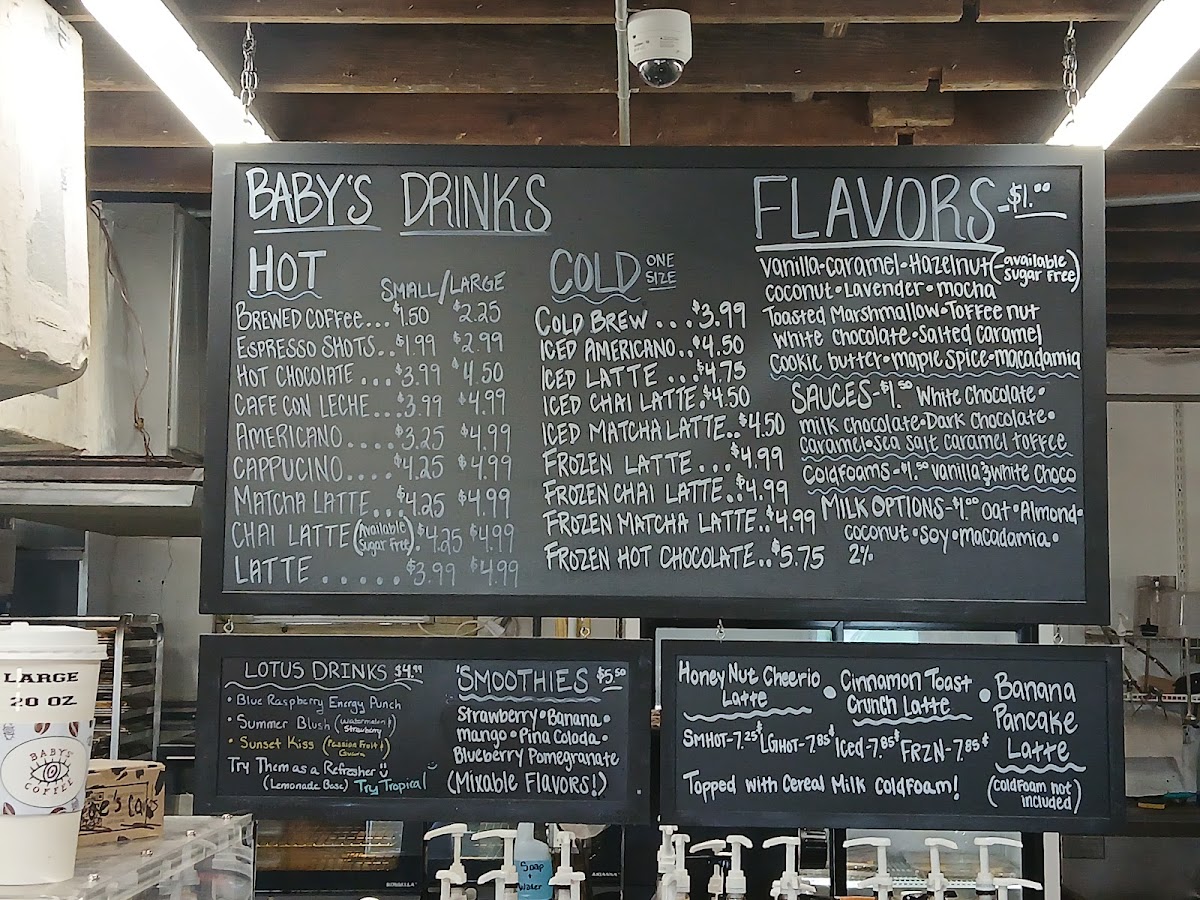 BABY'S DRINKS
HOT
SMALL/LARGE
BREWED COFFEE...$1.50 $2.25
ESPRESSO SHOTS..$1.99 $2.99
HOT CHOCOLATE ....$3.99 $4.50
CAFE CON LECHE...$3.99 $4.99
AMERICANO....$3.25 $4.99
CAPPUCINO....$4.25 $4.99
MATCHA LATTE...$4.25 $4.99
CHAI LATTE (Available Sugar Free).$4.25 $4.99
LATTE ......$3.99 $4.99
COLD ONE SIZE
COLD BREW ...$3.99
ICED AMERICANO..$4.50
ICED LATTE ...$4.75
ICED CHAI LATTE.$4.50
ICED MATCHA LATTE..$4.50
FROZEN LATTE ...$4.99
FROZEN CHAI LATTE..$4.99
FROZEN MATCHA LATTE..$4.99
FROZEN HOT CHOCOLATE..$5.75
FLAVORS-$1.00
vanilla•caramel•Hazelnut(-available sugar free)
coconut•Lavender•mocha
Toasted Marshmallow•Toffee nut
White Chocolate•Salted Caramel
Cookie butter•maple spice•macadamia
SAUCES-$1.50 White Chocolate•
milk chocolate•Dark chocolate•
caramel•sea salt caramel toffee
ColdFoams-$1.50 vanilla & white choco
MILK OPTIONS-$1.00 oat•Almond•
coconut•soy•macadamia•
2%
LOTUS DRINKS $4.99
• Blue Raspberry Energy Punch
• Summer Blush (Watermelon & Strawberry)
• Sunset Kiss (Passion Fruit & Guava)
Try Them as a Refresher
(Lemonade Base) Try Tropical
SMOOTHIES $5.50
Strawberry•Banana•
mango•Pina Colada•
Blueberry Pomegranate
(Mixable Flavors!)
Honey Nut Cheerio
Latte
• Cinnamon Toast
Crunch Latte
• Banana
Pancake
Latte
(coldfoam not
included)
SMHOT-7.25$ LGHOT-7.85$ Iced-7.85$ FRZN-7.85$
Topped with Cereal Milk Coldfoam!
LARGE
20 OZ
BABY'S
COFFEE
Soap
+
Water